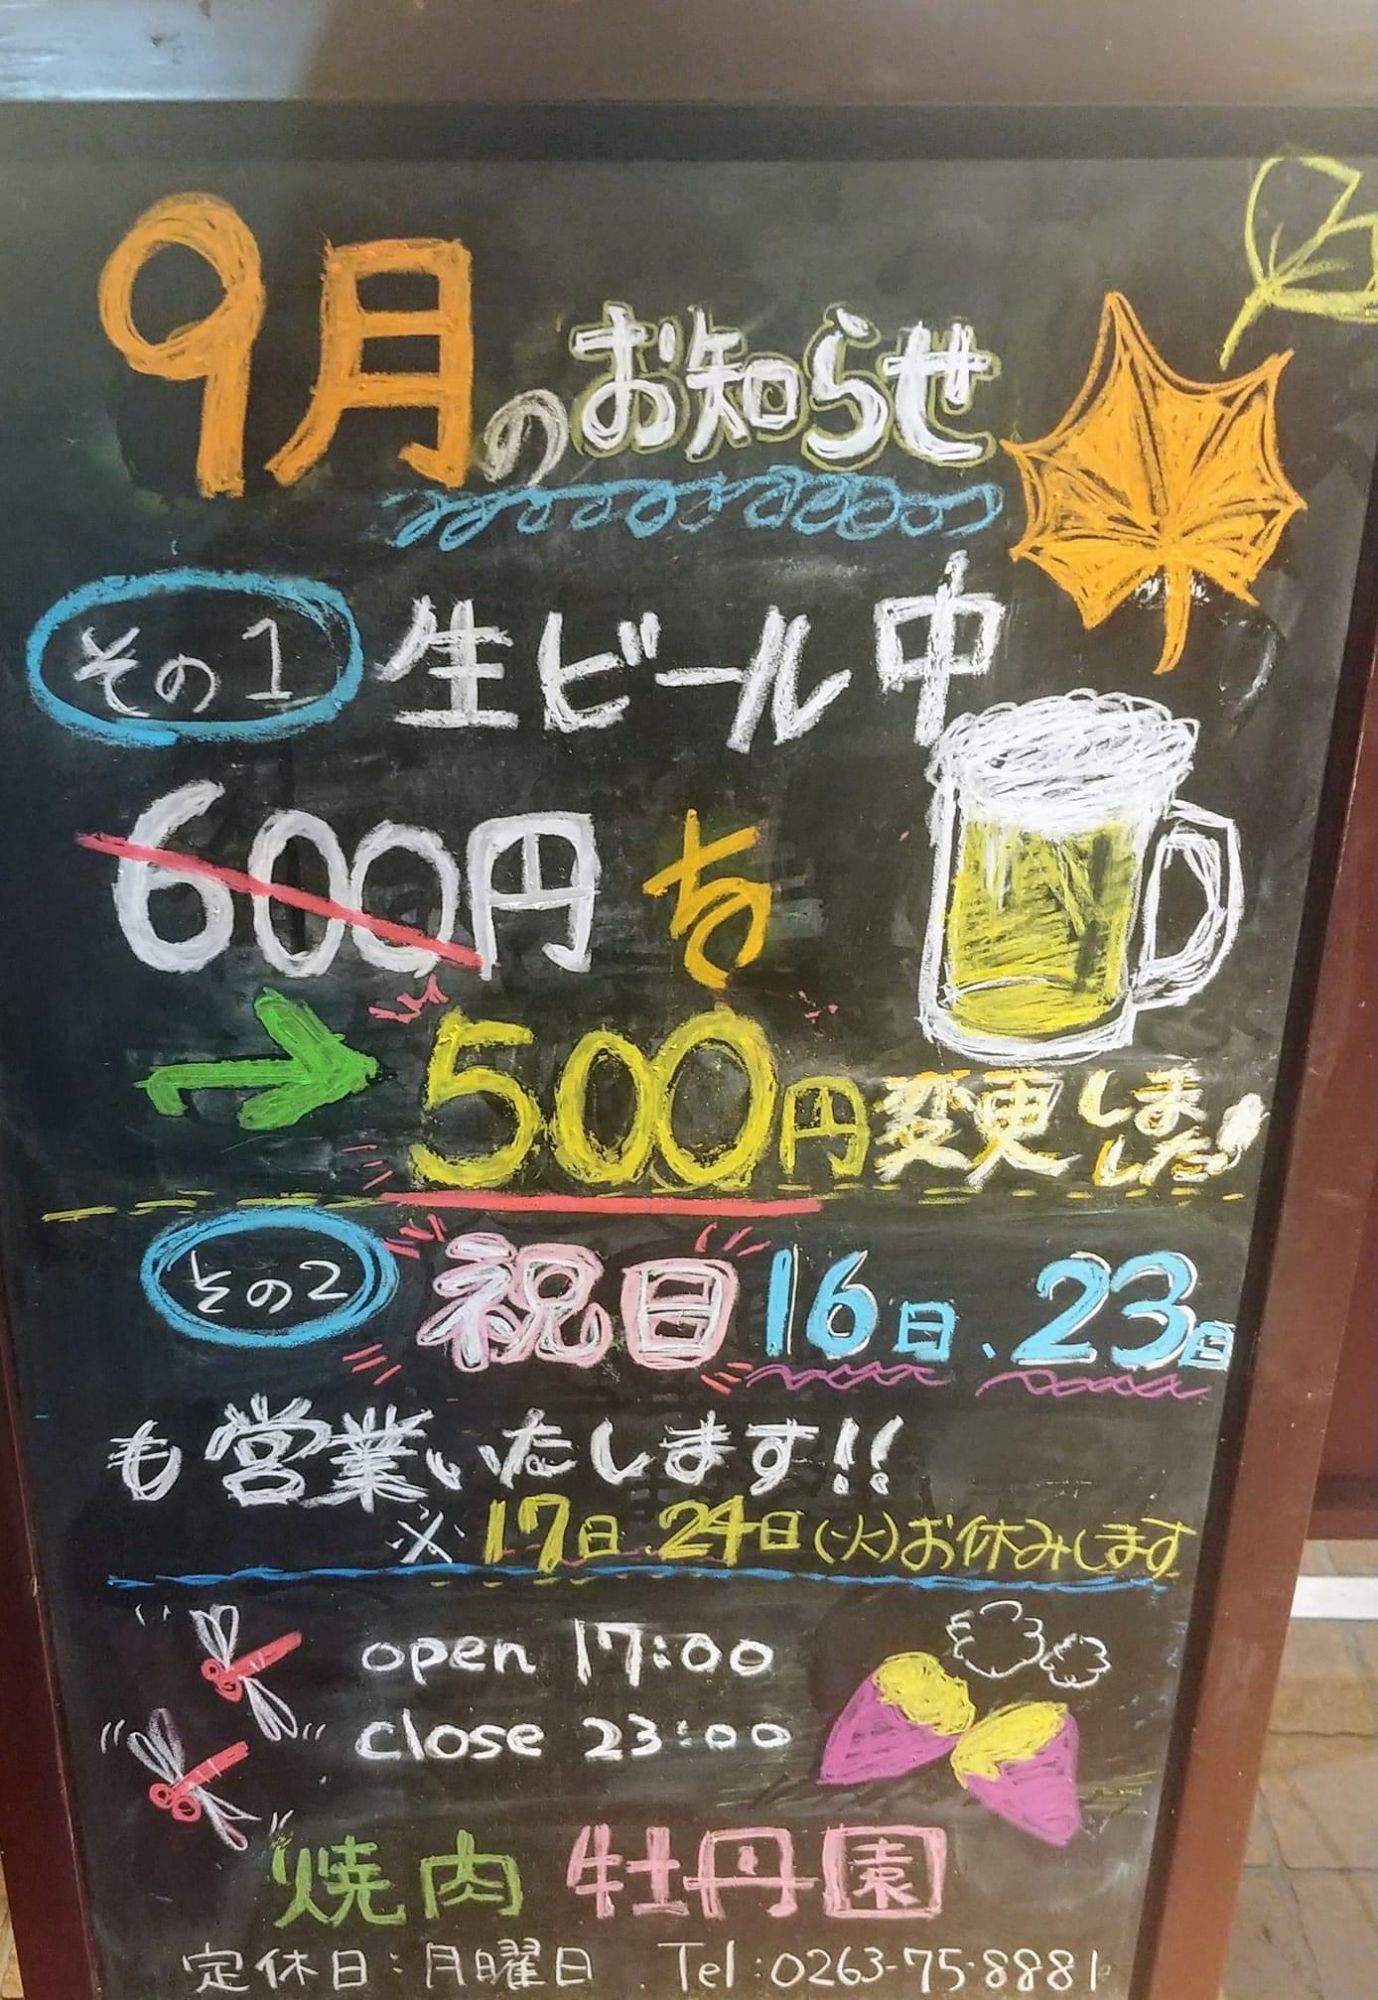 9月のお知らせ
その1 生ビール中
600円を
→500円変更しました!
その2 祝日16日、23日
も営業いたします!!
※17日、24日(火)お休みします
open 17:00
close 23:00
焼肉 牡丹園
定休日:月曜日 Tel:0263-75-8881